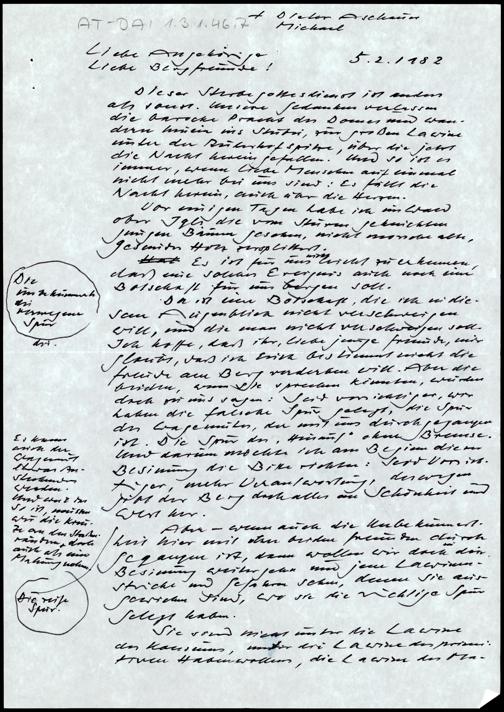 AT-DAI 1.3.1.46.7
+ Dieter Aschauer
Michael
Liebe Angehörige
Liebe Bergfreunde!
5.2.1982
Dieser Sterbegottesdienst ist anders
als sonst. Unsere Gedanken verlassen
die barocke Pracht des Domes und wan-
dern hinein ins Stubai, zur großen Lawine
unter der Ruderhofspitze, über die jetzt
die Nacht hereingefallen. Und so ist es
immer, wenn liebe Menschen auf einmal
nicht mehr bei uns sind: Es fällt die
Nacht herein, auch über die Herzen.
Vor einigen Tagen habe ich im Wald
ober Igls die vom Sturm geknickten
jungen Bäume gesehen, nicht morsche alte,
gesundes Holz zersplittert.
Es ist für uns nicht zu erkennen,
daß ein solches Ereignis auch noch eine
Botschaft für uns bergen soll.
Da ist eine Botschaft, die ich in die-
sem Augenblick nicht verschweigen
will, und die man nicht verschweigen soll.
Ich hoffe, daß ihr, liebe junge Freunde, mir
glaubt, daß ich Euch bestimmt nicht die
Freude am Berg verderben will. Aber die
beiden, wenn sie sprechen könnten, würden
doch zu uns sagen: Seid vorsichtiger, wir
haben die falsche Spur gelegt, die Spur
des Wagemutes, der mit uns durchgegangen
ist. Die Spur des "Hinauf" ohne Bremse.
Und darum möchte ich am Beginn dieser
Besinnung die Bitte richten: Seid vorsich-
tiger, mehr Verantwortung, deswegen
gibt der Berg doch alles an Schönheit und
Wert her.
Aber - wenn auch die Unbekümmert-
heit hier mit den beiden Freunden durch
gegangen ist, dann wollen wir doch die
Besinnung weitergehen und jene Lawinen-
striche und Gefahren sehen, denen sie aus-
gewichen sind, wo sie die richtige Spur
gelegt haben.
Sie sind nicht unter die Lawine
des Konsums, unter die Lawine des primi-
tiven Habenwollens, die Lawine des Ma-
Die
unbekümmerte
die
verwegene
Spur
Es kann
auch der
Wagemut
etwas
werden.
Und weil das
so ist, müssen
wir die
an der
doch
auch als eine
Mahnung sehen.
Die reife
Spur.